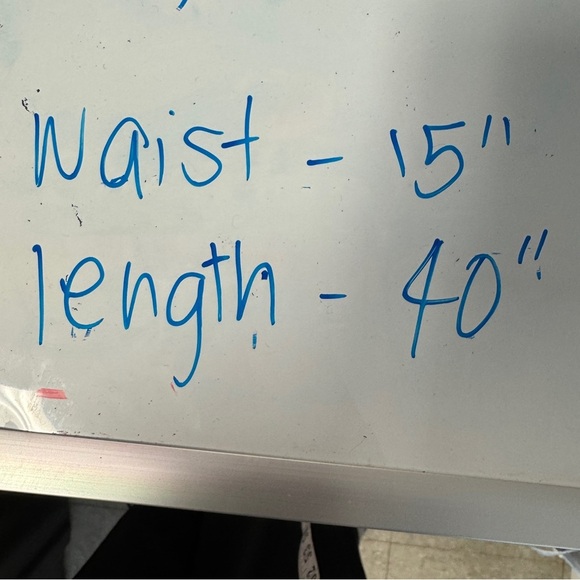 Waist - 15"
length - 40"